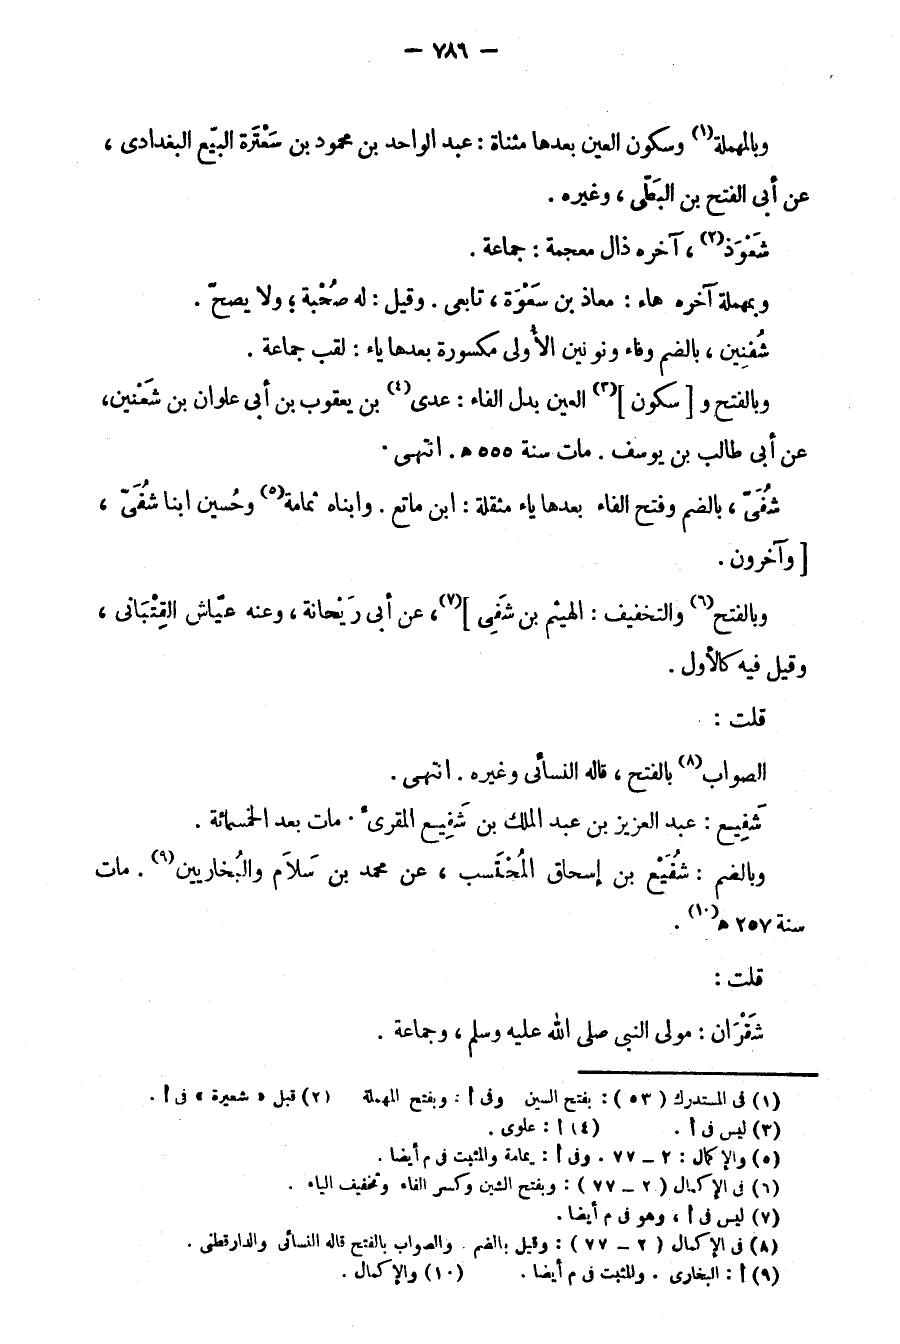 — ٧٨٦ —
وبالمهملة(١) وسكون العين بعدها مثناة : عبد الواحد بن محمود بن سَعْتَرة البيّع البغدادى ،
عن أبى الفتح بن البَطّى ، وغيره .
شَعْوَذ(٢) ، آخره ذال معجمة : جماعة .
وبمهملة آخره هاء : معاذ بن سَعْوَة ، تابعى . وقيل : له صُحْبة ؛ ولا يصحّ .
شُفنِين ، بالضم وفاء ونونين الأولى مكسورة بعدها ياء : لقب جماعة .
وبالفتح و [ سكون ](٣) العين بدل الفاء : عدى(٤) بن يعقوب بن أبى علوان بن شَعْنين،
عن أبى طالب بن يوسف . مات سنة ٥٥٥ ه . انتهى .
شُفَىّ ، بالضم وفتح الفاء بعدها ياء مثقلة : ابن ماتع . وابناه ثمامة(٥) وحُسين ابنا شُفَىّ ،
[ وآخرون .
وبالفتح(٦) والتخفيف : الهيثم بن شَفِى ](٧)، عن أبى رَيْحانة ، وعنه عيّاش القِتْبَانى ،
وقيل فيه كالأول .
قلت :
الصواب(٨) بالفتح ، قاله النسائى وغيره . انتهى .
شَفِيع : عبد العزيز بن عبد الملك بن شَفِيع المقرىء . مات بعد الخمسمائة .
وبالضم : شُفَيْع بن إسحاق المُحْتَسب ، عن محمد بن سَلاَم والبُخاريين(٩) . مات
سنة ٢٥٧ ه(١٠) .
قلت :
شَقْرَان : مولى النبى صلى الله عليه وسلم ، وجماعة .
(١) فى المستدرك ( ٥٣ ) : بفتح السين وفى أ : وبفتح المهملة (٢) قبل « شعيرة » فى أ .
(٣) ليس فى أ . (٤) أ : علوى .
(٥) والإكمال : ٢ – ٧٧ . وفى أ : يمامة والمثبت فى م أيضا .
(٦) فى الإكمال ( ٢ – ٧٧ ) : وبفتح الشين وكسر الفاء وتخفيف الياء .
(٧) ليس فى أ ، وهو فى م أيضا .
(٨) فى الإكمال ( ٢ – ٧٧ ) : وقيل بالضم . والصواب بالفتح قاله النسائى والدارقطنى .
(٩) أ : البخارى . والمثبت فى م أيضا . (١٠) والإكمال .